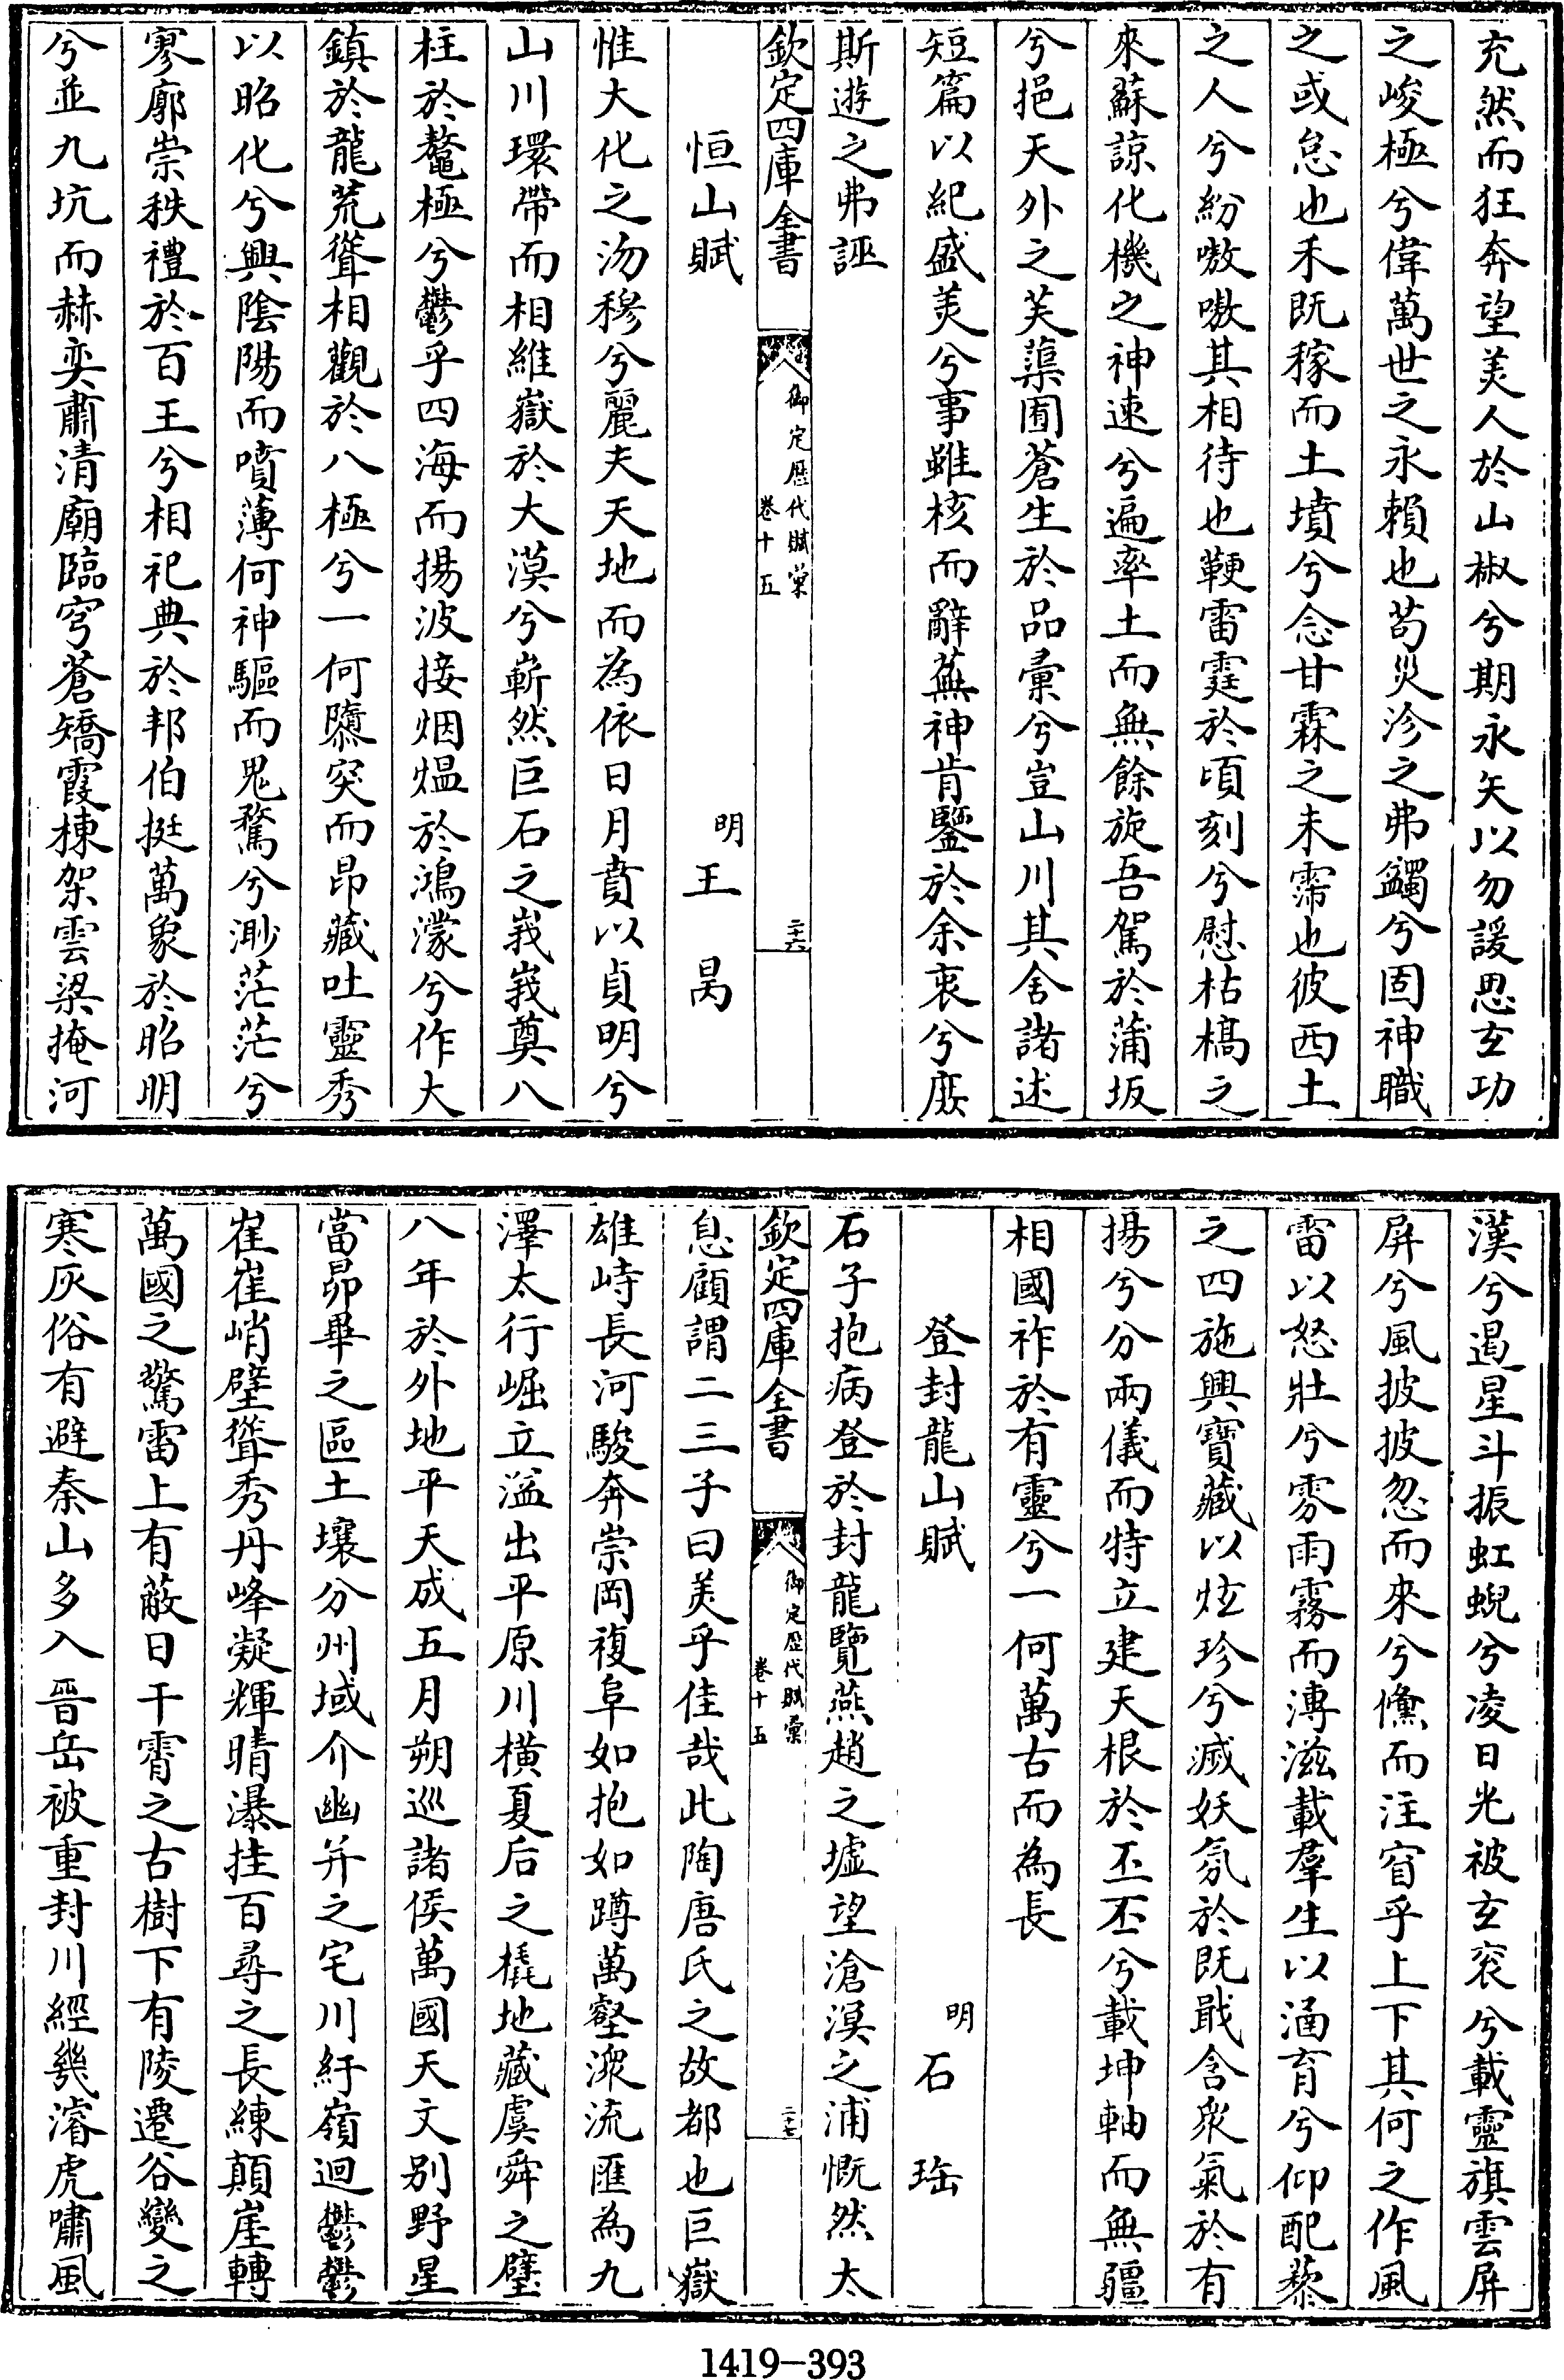 充然而狂奔望美人於山椒兮期永矢以勿諼思玄功
之峻極兮偉萬世之永賴也苟災沴之弗蠲兮固神職
之或怠也禾既稼而土墳兮念甘霖之未霈也彼西土
之人兮紛嗷嗷其相待也鞭雷霆於頃刻兮慰枯槁之
來蘇諒化機之神速兮遍率土而無餘旋吾駕於蒲坂
兮挹天外之芙蕖囿蒼生於品彙兮豈山川其舍諸述
短篇以紀盛美兮事雖核而辭蕪神肯鑒於余衷兮庶
斯遊之弗誣
欽定四庫全書
御定歷代賦彙
卷十五
二十六
恒山賦
明王昺
惟大化之沕穆兮麗夫天地而為依日月賁以貞明兮
山川環帶而相維嶽於大漠兮嶄然巨石之峩峩奠八
柱於鼇極兮鬱乎四海而揚波接烟煴於鴻濛兮作大
鎮於龍荒聳相觀於八極兮一何隳突而昂藏吐靈秀
以昭化兮興陰陽而噴薄何神驅而鬼騖兮渺茫茫兮
寥廓崇秩禮於百王兮相祀典於邦伯挺萬象於昭明
兮並九坑而赫奕肅清廟臨穹蒼矯霞棟架雲梁掩河
漢兮遏星斗振虹蜺兮凌日光被玄衮兮載靈旗雲屏
屏兮風披披忽而來兮儵而注窅乎上下其何之作風
雷以怒壯兮雰雨霧而溥滋載羣生以涵育兮仰配藜
之四施興寶藏以炫珍兮滅妖氛於既戢含衆氣於有
揚兮分兩儀而特立建天根於丕丕兮載坤軸而無疆
相國祚於有靈兮一何萬古而為長
登封龍山賦
明石珤
石子抱病登於封龍覽燕趙之墟望滄溟之浦慨然太
欽定四庫全書
御定歷代賦彙
卷十五
二十七
息顧謂二三子曰美乎佳哉此陶唐氏之故都也巨嶽
雄峙長河駿奔崇岡複阜如抱如蹲萬壑潀流匯為九
澤太行崛立溢出平原川橫夏后之橇地藏虞舜之璧
八年於外地平天成五月朔巡諸侯萬國天文別野星
當昴畢之區土壤分州域介幽并之宅川紆嶺迴鬱鬱
崔崔峭壁聳秀丹峰凝輝晴瀑挂百尋之長練顛崖轉
萬國之驚雷上有蔽日干霄之古樹下有陵遷谷變之
寒灰俗有避秦山多入晉岳被重封川經幾濬虎嘯風
1419-393